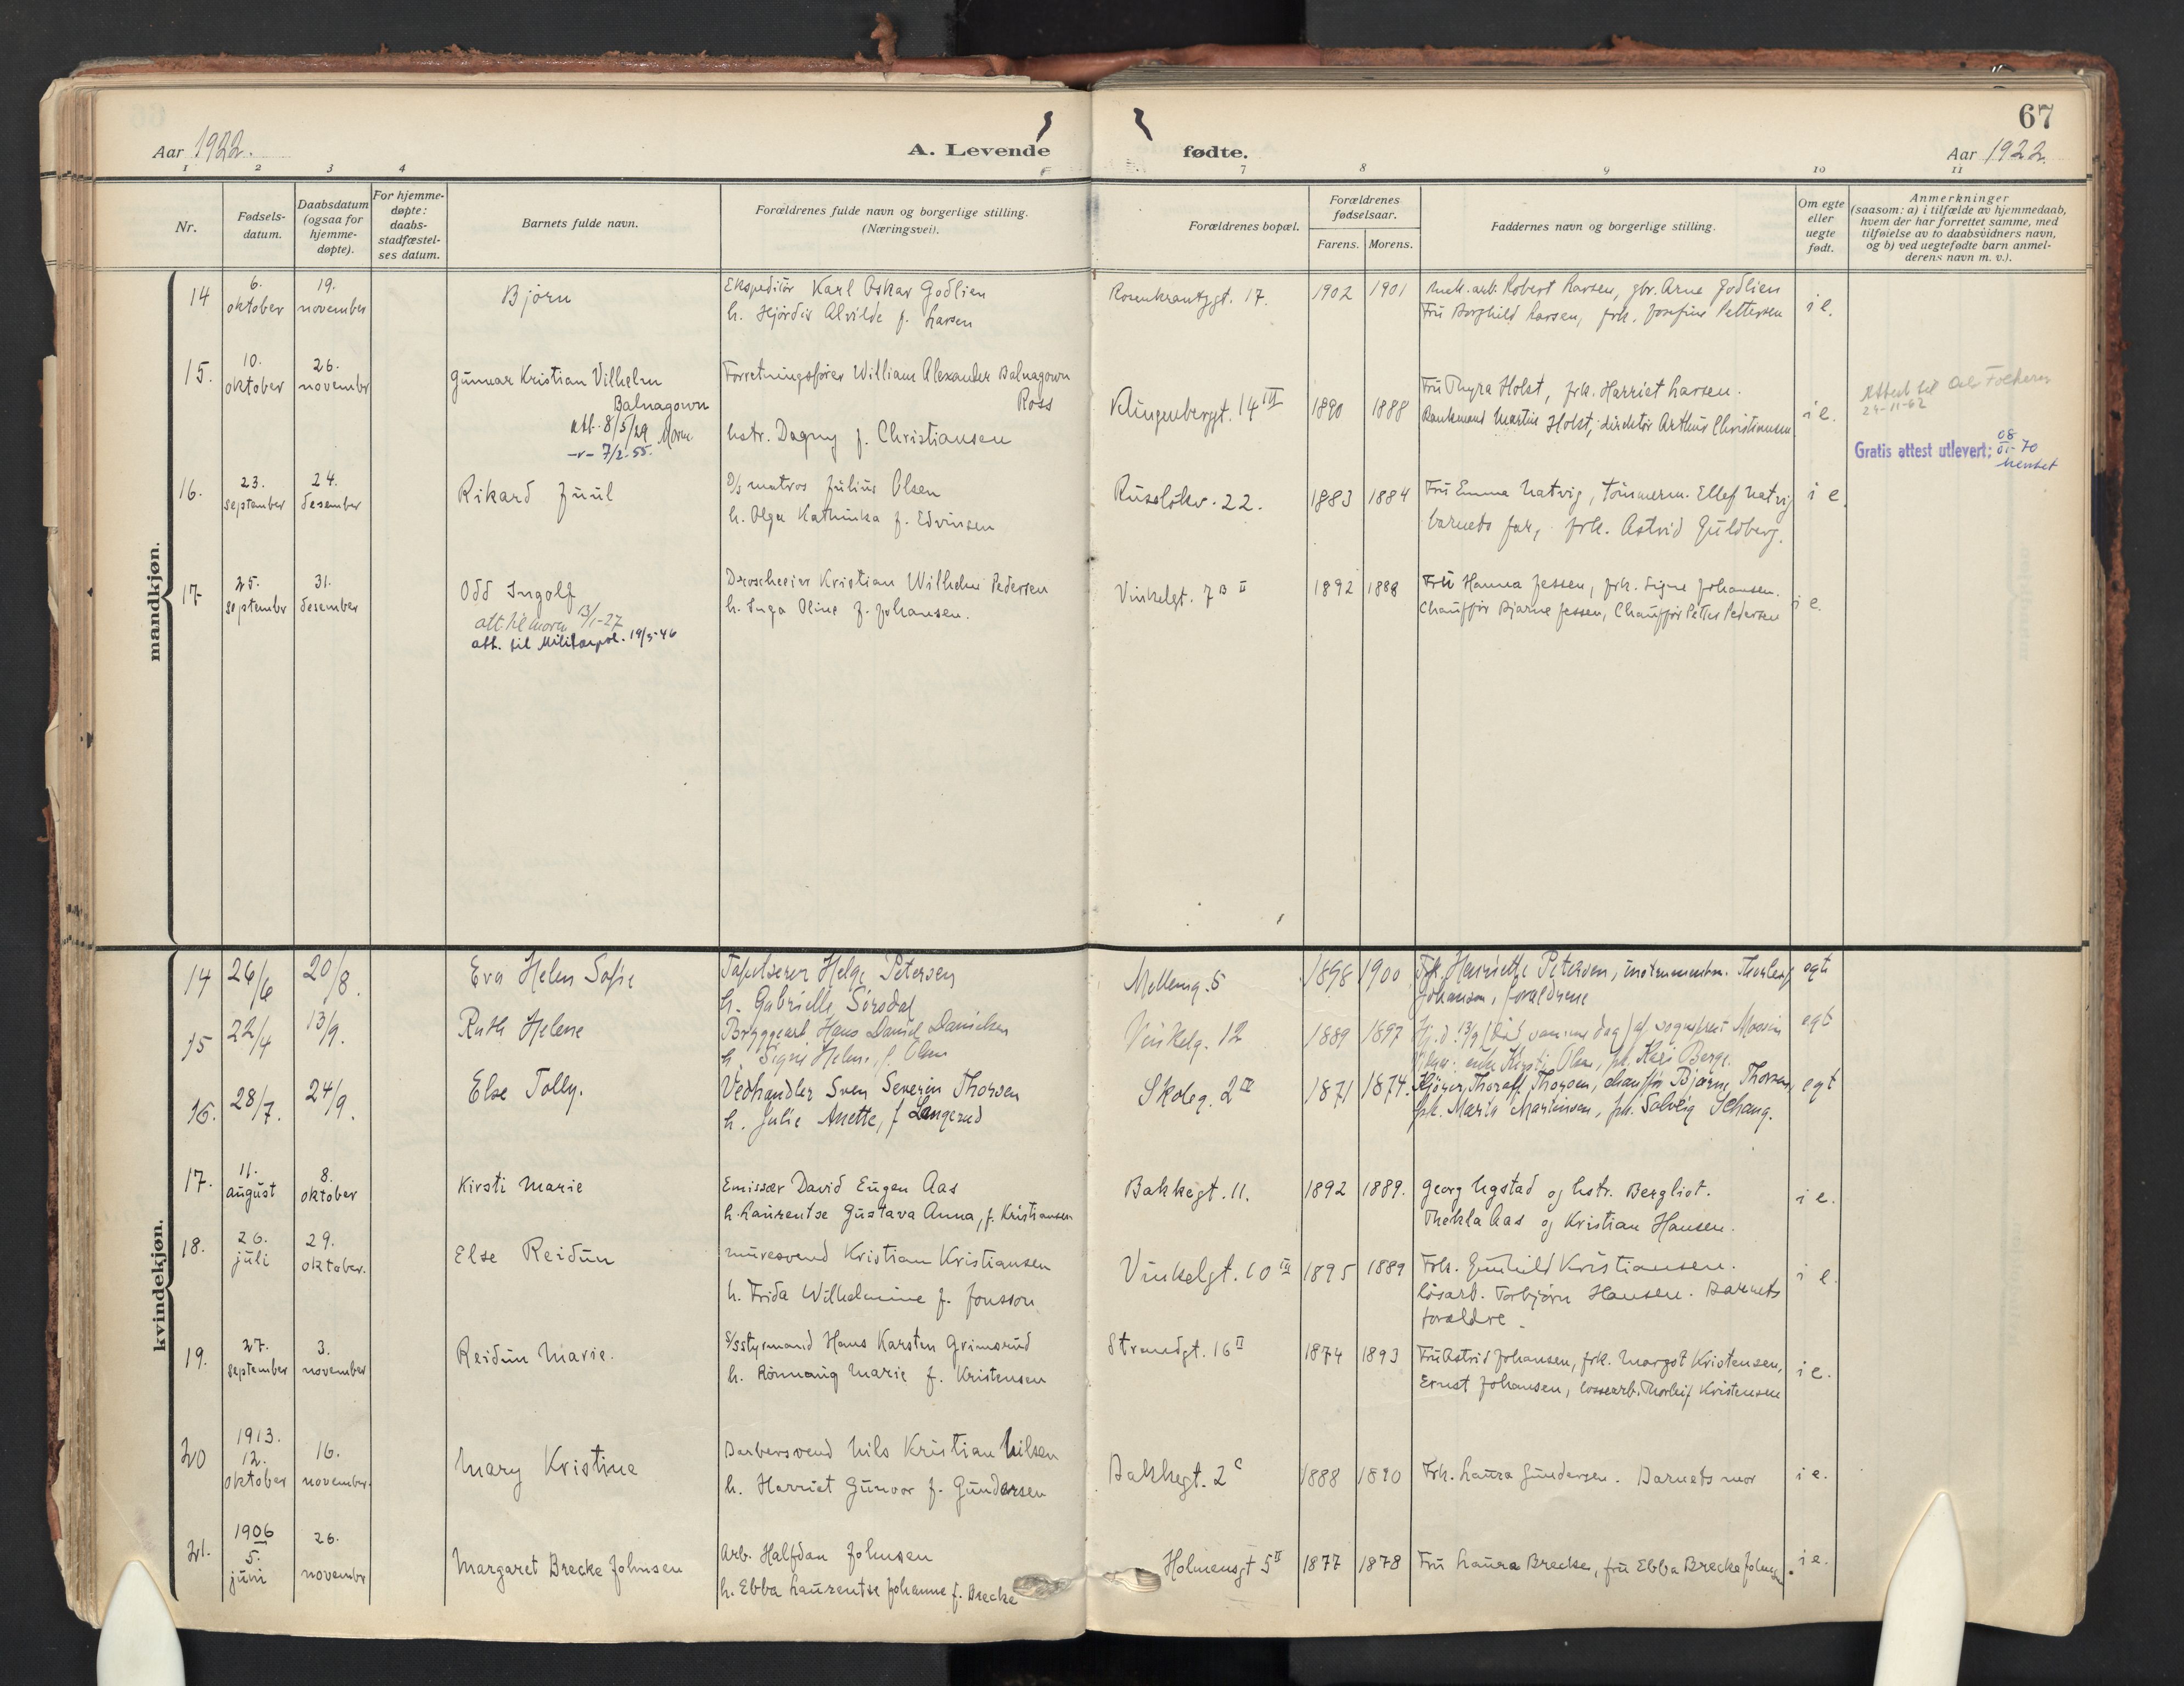 67
Aar 1922. A. Levende fødte. Aar 1922.
1 2 3 4 7 8 9 10 11
Nr.
Fødsels-
datum.
Daabsdatum
(ogsaa for
hjemme-
døpte).
For hjemme-
døpte:
daabs-
stadfæstel-
ses datum.
Barnets fulde navn.
Forældrenes fulde navn og borgerlige stilling.
(Næringsvei).
Forældrenes bopæl.
Forældrenes
fødselsaar.
Farens. Morens.
Faddernes navn og borgerlige stilling.
Om egte
eller
uegte
født.
Anmerkninger
(saasom: a) i tilfælde av hjemmedaab,
hvem der har forrettet samme, med
tilføielse av to daabsvidners navn,
og b) ved uegtefødte barn anmel-
derens navn m. v.).
mandkjøn.
14
6.
oktober
19.
november
Bjørn
Ekspeditør Karl Oskar Godlien
h. Hjørdis Alvilde f. Larsen
Rosenkrantzgt. 17.
1902 1901
Mek. arb. Robert Larsen, gbr. Arne Godlien
Fru Borghild Larsen, frk. Josefine Pettersen
i e.
15.
10.
oktober
26.
november
Gunnar Kristian Vilhelm
Balnagown
att. 8/5/29 Moren
-"- 7/2-55.
Forretningsfører William Alexander Balnagown
Ross
hstr. Dagny f. Christiansen
Klingenberggt. 14 IV
1890 1888
Fru Thyra Holst, frk. Harriet Larsen.
Bankmand Martin Holst, direktør Arthur Christiansen
i e.
Attest til Oslo Folkereg
24-11-62
Gratis attest utlevert: 08/01-70
hentet
16.
23.
september
24.
desember
Rikard Juul
D/s matros Julius Olsen
h. Olga Kathinka f. Edvinsen
Ruseløkv. 22.
1883 1884
Fru Emma Natvig, tømmerm. Ellef Natvig
barnets far, frk. Astrid Guldberg.
i e.
17.
25.
september
31.
desember
Odd Ingolf
att. til moren 13/1-27
att. til Militærpol. 19/5-46
Droscheeier Kristian Wilhelm Pedersen
h. Inga Oline f. Johansen.
Vinkelgt. 7 B II
1892 1888
Fru Hanna Jessen, frk. Signe Johansen.
Chauffør Bjarne Jessen, Chauffør Petter Pedersen
i e.
kvindekjøn.
14
26/6
20/8.
Eva Helen Sofie
Tapetserer Helge Petersen
h. Gabrielle Sörsdal
Mellemg. 5
1898 1900
Frk. Henriette Petersen, instrumentm. Thorleif
Johanson, forældrene
egte
15
22/4
13/9.
Ruth Helene
Bryggearb. Hans Daniel Danielsen
h. Signe Helene, f. Olsen
Vinkelg. 12
1889 1897
Hj.d. 13/9 (død samme dag) af sogneprest
enke Kirsti Olsen, frk. Kari Berge.
egte
16.
28/7.
24/9.
Else Tolly.
Vedhandler Sven Severin Thorsen
h. Julie Anette, f Langerud
Skoleg. 2 IV
1871 1874.
Thoralf Thorsen, chauffør Bjarne Thorsen,
frk. Marta Martinsen, frk. Solveig Schang.
egt
17.
11.
august
8.
oktober
Kirsti Marie
Emissær David Eugen Aas
h. Laurentse Gustava Anna, f. Kristiansen
Bakkegt. 11.
1892 1889.
Georg Ugstad og hstr. Bergliot.
Thekla Aas og Kristian Hansen.
i e.
18.
26.
juli
29.
oktober.
Else Reidun
Muresvend Kristian Kristiansen
h. Frida Wilhelmine f. Jonsson
Vinkelgt. 10 III
1895 1889
Frk. Gunhild Kristiansen.
løsarb. Torbjørn Hansen. Barnets
forældre.
i e.
19.
27.
september
3.
november
Reidun Marie.
S/S styrmand Hans Karsten Grimsrud
h. Rönnaug Marie f. Kristensen
Strandgt. 16 II
1874 1893
Fru Astrid Johansen, frk. Margot Kristensen,
Ernst Johansen, lossearb. Thorleif Kristensen
i e.
20
1913.
12.
oktober
16.
november.
Mary Kristine
Barbersvend Nils Kristian Nilsen
h. Harriet Gunvor f. Gundersen
Bakkegt. 2 c
1888 1890
Frk. Laura Gundersen. Barnets mor
i e.
21.
1906
5.
juni
26.
november
Margaret Brecke Johnsen
Arb. Halfdan Johnsen
h. Ebba Laurentse Johanne f. Brecke
Holmensgt 5 II
1877 1878
Fru Laura Brecke, fru Ebba Brecke Johnsen.
i e.